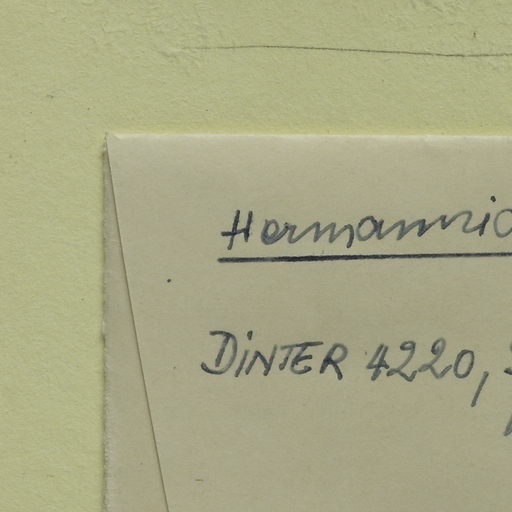 Hermannia
DINTER 4220,